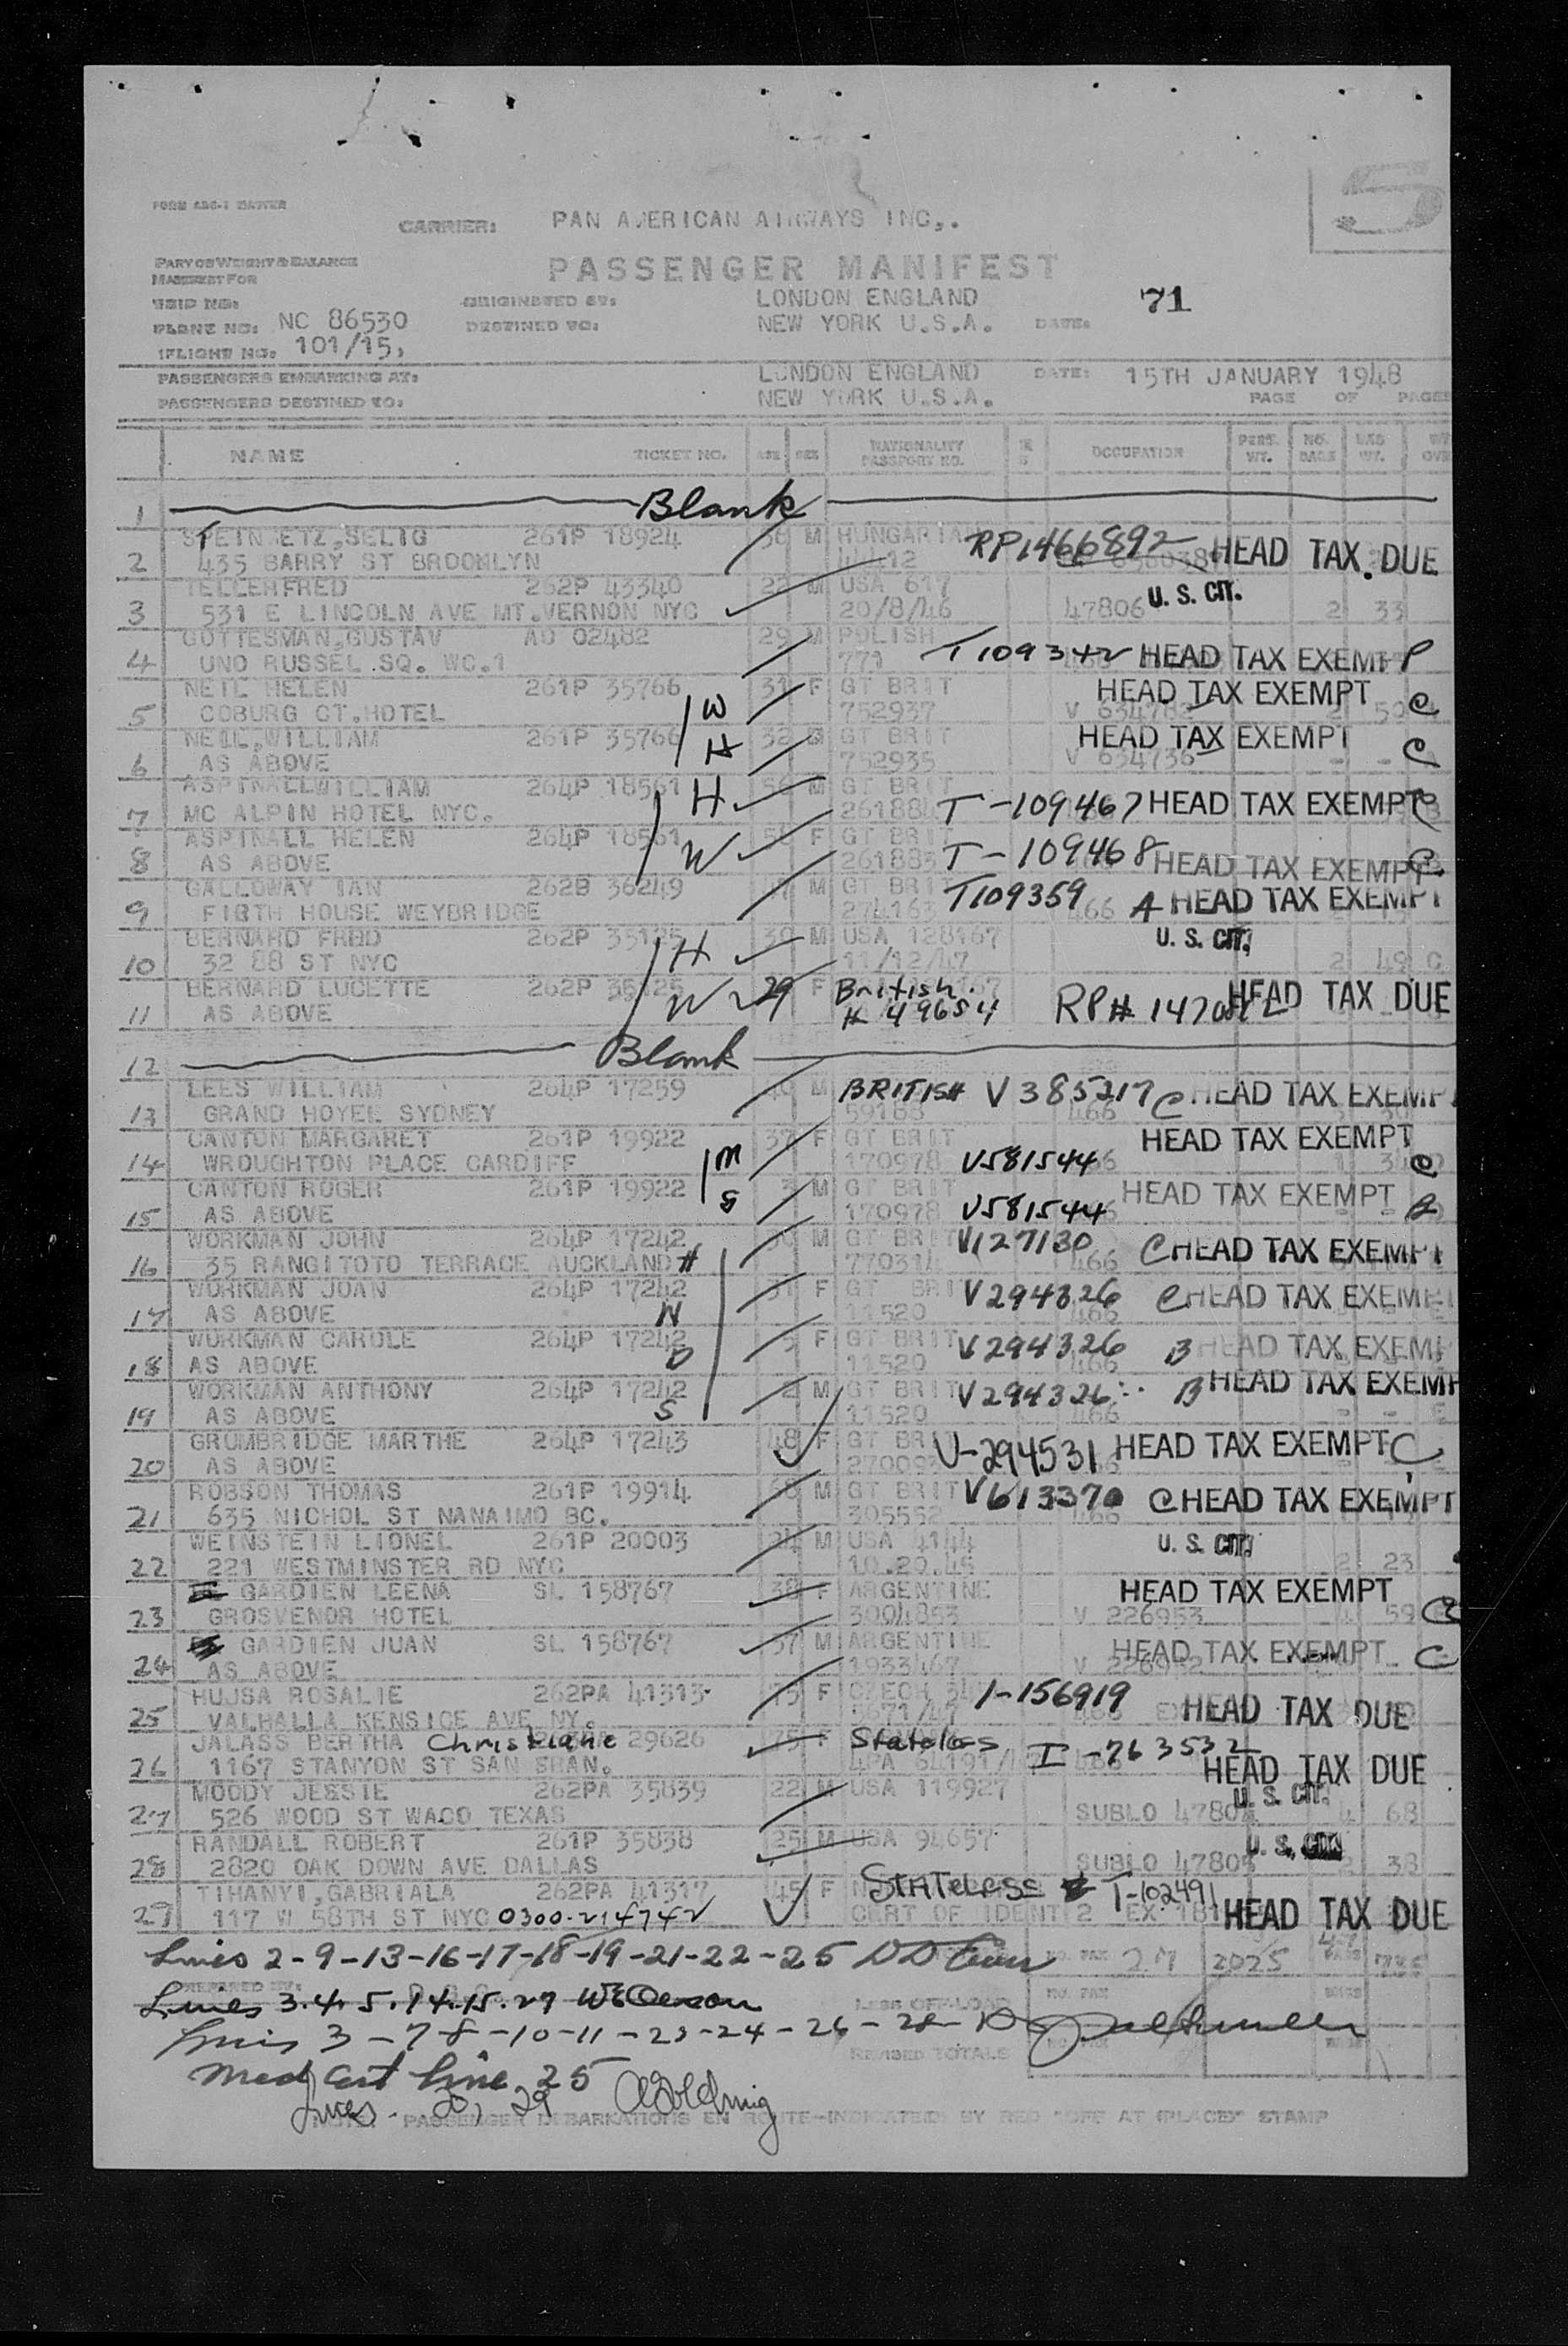 5
FORM ABC-1 MASTER
CARRIER: PAN AMERICAN AIRWAYS INC,.
PASSENGER MANIFEST
MANIFEST FOR
TRIP NO: ORIGINATED AT: LONDON ENGLAND 71
PLANE NO: NC 86530 DESTINED TO: NEW YORK U.S.A. DATE:
FLIGHT NO. 101/15,
PASSENGERS EMBARKING AT: LONDON ENGLAND DATE: 15TH JANUARY 1948
PASSENGERS DESTINED TO: NEW YORK U.S.A. PAGE OF PAGES
NAME TICKET NO. AGE SEX NATIONALITY PASSPORT NO. OCCUPATION PERS. WT. NO. BAGS BAG WT.
1 Blank
STEINMETZ,SELIG 261P 18924 36 M HUNGARIAN RP1466892 HEAD TAX DUE
2 435 BARRY ST BROOKLYN
TELLERFRED 262P 43340 22 M USA 617 U. S. CIT.
3 531 E LINCOLN AVE MT.VERNON NYC 20/8/46 47806 2 33
GOTTESMAN,GUSTAV AO 02482 29 M POLISH T109342 HEAD TAX EXEMP
4 UNO RUSSEL.SQ. WC.1 771
NEIL HELEN 261P 35766 31 F GT BRIT HEAD TAX EXEMPT
5 COBURG CT.HOTEL W 752937 V 634782 C
NEIL,WILLIAM 261P 35766 32 GT BRIT HEAD TAX EXEMPT
6 AS ABOVE H 752935 V 634736 - - C
ASPINALLWILLIAM 264P 18561 H M GT BRIT T-109467 HEAD TAX EXEMPT C
7 MC ALPIN HOTEL NYC.
ASPINALL HELEN 264P 18561 W F GT BRIT T-109468 HEAD TAX EXEMPT C
8 AS ABOVE 261883
GALLOWAY IAN 262B 36249 47 M GT BRIT T109359 A HEAD TAX EXEMPT
9 FIRTH HOUSE WEYBRIDGE 274163 466
BERNARD FRED 262P 35125 H 30 M USA 128167 U. S. CIT.
10 32 88 ST NYC 11/12/47 2 49
BERNARD LUCETTE 262P 35125 W 29 F British HEAD TAX DUE
11 AS ABOVE # 49654 RP#
12 Blank
LEES WILLIAM 264P 17259 M BRITISH V385217 C HEAD TAX EXEMP
13 GRAND HOYEL SYDNEY 59188 466
CANTON MARGARET 261P 19922 37 F GT BRIT HEAD TAX EXEMPT
14 WROUGHTON PLACE CARDIFF M 170978 V581544 C
CANTON ROGER 261P 19922 M GT BRIT HEAD TAX EXEMPT
15 AS ABOVE S 170978 V581544
WORKMAN JOHN 264P 17242 M GT BRIT V127130 C HEAD TAX EXEMPT
16 35 RANGITOTO TERRACE AUCKLAND H 466
WORKMAN JOAN 264P 17242 31 F GT BRIT V294326 C HEAD TAX EXEM
17 AS ABOVE W 11520 466
WORKMAN CAROLE 264P 17242 5 F GT BRIT V294326 B HEAD TAX EXEM
18 AS ABOVE D 11520 466
WORKMAN ANTHONY 264P 17242 2 M GT BRIT V294326 B HEAD TAX EXEM
19 AS ABOVE S 11520 466
GRUMBRIDGE MARTHE 264P 17243 48 F GT BRIT V-294531 HEAD TAX EXEMPT C
20 AS ABOVE
ROBSON THOMAS 261P 19914 68 M GT BRIT V613370 C HEAD TAX EXEMPT
21 635 NICHOL ST NANAIMO BC. 305552 466
WEINSTEIN LIONEL 261P 20003 24 M USA 4144 U. S. CIT.
22 221 WESTMINSTER RD NYC 10.29.45 2 23
GARDIEN LEENA SL 158767 38 F ARGENTINE HEAD TAX EXEMPT
23 GROSVENOR HOTEL 3004853 V 226953 4 59 C
GARDIEN JUAN SL 158767 37 M ARGENTINE HEAD TAX EXEMPT C
24 AS ABOVE 1933467 V 226952
HUJSA ROSALIE 262PA 41313 75 F CZECH I-156919 HEAD TAX DUE
25 VALHALLA KENSICE AVE NY.
JALASS BERTHA Christiane 29626 75 F Stateless I-763532
26 1167 STANYON ST SAN FRAN. HEAD TAX DUE
MOODY JESSIE 262PA 35839 22 M USA 119927 U. S. CIT.
27 526 WOOD ST WACO TEXAS SUBLO 4780 4 68
RANDALL ROBERT 261P 35838 25 M USA 94657 U. S. CIT.
28 2820 OAK DOWN AVE DALLAS SUBLO 4780 2 38
TIHANYI,GABRIALA 262PA 41317 45 F STATELESS T-102491
29 117 W 58TH ST NYC 0300-214742 CERT OF IDENT 2 EX HEAD TAX DUE
Lines 2-9-13-16-17-18-19-21-22-25 27 2025
Lines 3.4.5.14.15.27
Lines 3-7-8-10-11-23-24-26-28
LESS OFF-LOAD
REVISED TOTALS
Med Cert Line 25
Lines 20, 29
PASSENGER DEBARKATIONS EN ROUTE-INDICATED BY RED STAMP